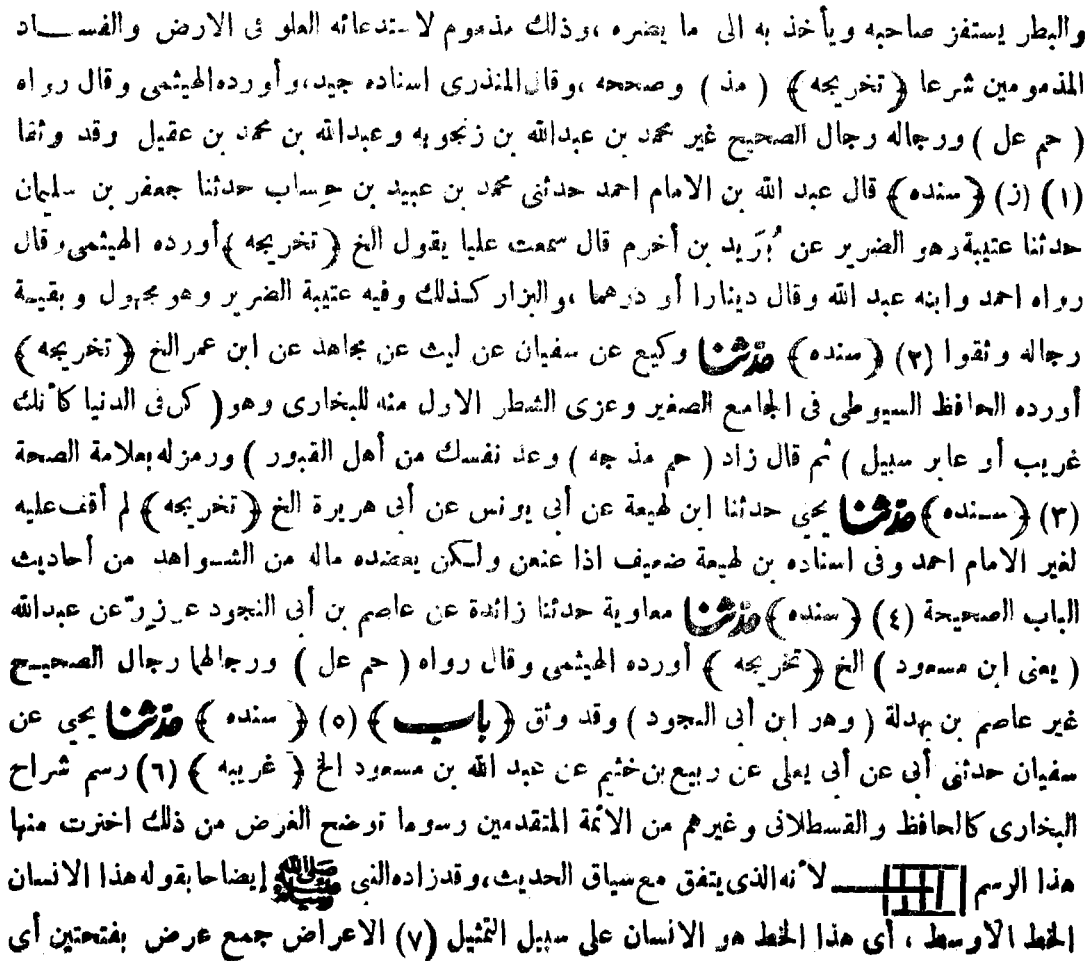 والبطر يستفز صاحبه ويأخذ به الى ما يضره ،وذلك مذموم لاستدعائه العلو فى الارض والفساد
المذمومين شرعا ﴿تخريجه﴾ ( مذ ) وصححه ،وقال المنذرى اسناده جيد،وأورده الهيثمى وقال رواه
( حم عل ) ورجاله رجال الصحيح غير محمد بن عبدالله بن زنجويه وعبدالله بن محمد بن عقيل وقد وثقا
(١) (ز) ﴿سنده﴾ قال عبد الله بن الامام احمد حدثنى محمد بن عبيد بن حِساب حدثنا جعفر بن سليمان
حدثنا عتيبة وهو الضرير عن بُرَيد بن أخرم قال سمعت عليا يقول الخ ﴿تخريجه﴾ أورده الهيثمى وقال
رواه احمد وابنه عبد الله وقال دينارا أو درهما ،والبزار كذلك وفيه عتيبة الضرير وهو مجهول وبقية
رجاله وثقوا (٢) ﴿سنده﴾ حدثنا وكيع عن سفيان عن ليث عن مجاهد عن ابن عمر الخ ﴿تخريجه﴾
أورده الحافظ السيوطى فى الجامع الصغير وعزى الشطر الاول منه للبخارى وهو ( كن فى الدنيا كأنك
غريب أو عابر سبيل ) ثم قال زاد ( حم مذ جه ) وعد نفسك من أهل القبور ) ورمز له بعلامة الصحة
(٣) ﴿سنده﴾ حدثنا يحيى حدثنا ابن لهيعة عن أبى يونس عن أبى هريرة الخ ﴿تخريجه﴾ لم أقف عليه
لغير الامام احمد وفى اسناده بن لهيعة ضعيف اذا عنعن ولكن يعضده ماله من الشواهد من أحاديث
الباب الصحيحة (٤) ﴿سنده﴾ حدثنا معاوية حدثنا زائدة عن عاصم بن أبى النجود عن زِرّ عن عبدالله
( يعنى ابن مسعود ) الخ ﴿تخريجه﴾ أورده الهيثمى وقال رواه ( حم عل ) ورجالهما رجال الصحيح
غير عاصم بن بهدلة ( وهو ابن أبى النجود ) وقد وثق ﴿باب﴾ (٥) ﴿سنده﴾ حدثنا يحيى عن
سفيان حدثنى أبى عن أبى يعلى عن ربيع بن خثيم عن عبد الله بن مسعود الخ ﴿غريبه﴾ (٦) رسم شراح
البخارى كالحافظ والقسطلانى وغيرهم من الائمة المتقدمين رسوما توضح الغرض من ذلك اخترت منها
هذا الرسم لأنه الذى يتفق مع سياق الحديث،وقد زاده النبى ﷺ إيضاحا بقوله هذا الانسان
الخط الاوسط ، أى هذا الخط هو الانسان على سبيل التمثيل (٧) الاعراض جمع عرض بفتحتين أى